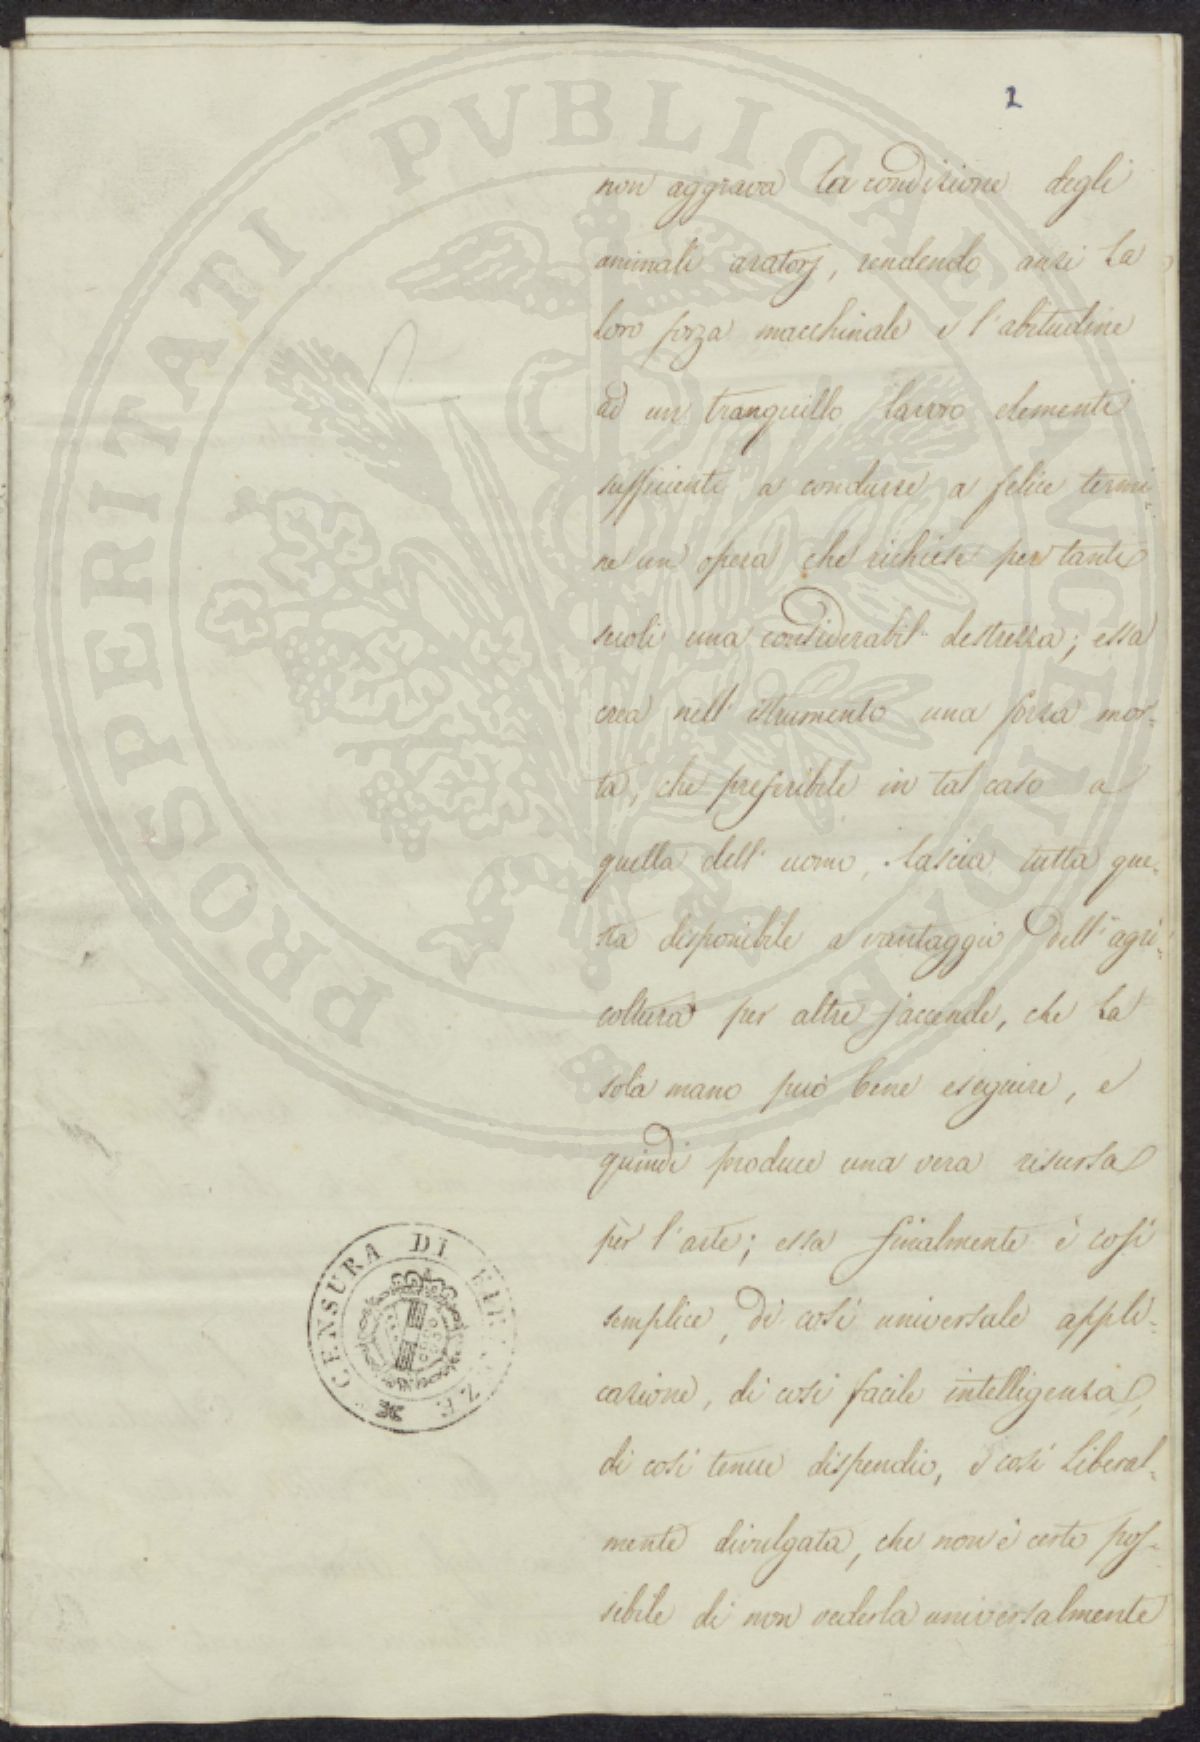 PROSPERITATI PVBLICAE AVGENDAE
2
non aggrava la condizione degli
animali aratorj, rendendo anzi la
loro forza macchinale e l'abitudine
ad un tranquillo lavoro elementi
sufficienti a condurre a felice termi-
ne un' opera che richiese per tanti
secoli una considerabil destrezza; essa
crea nell' istrumento una forza mor-
ta, che preferibile in tal caso a
quella dell' uomo, lascia tutta que-
sta disponibile a vantaggio dell' agri-
coltura per altre faccende, che la
sola mano può bene eseguire, e
quindi produce una vera risorsa
per l'arte; essa finalmente è così
semplice, di così universale appli-
cazione, di così facile intelligenza,
di così tenue dispendio, è così liberal-
mente divulgata, che non è certo pos-
sibile di non vederla universalmente
CENSURA DI FIRENZE